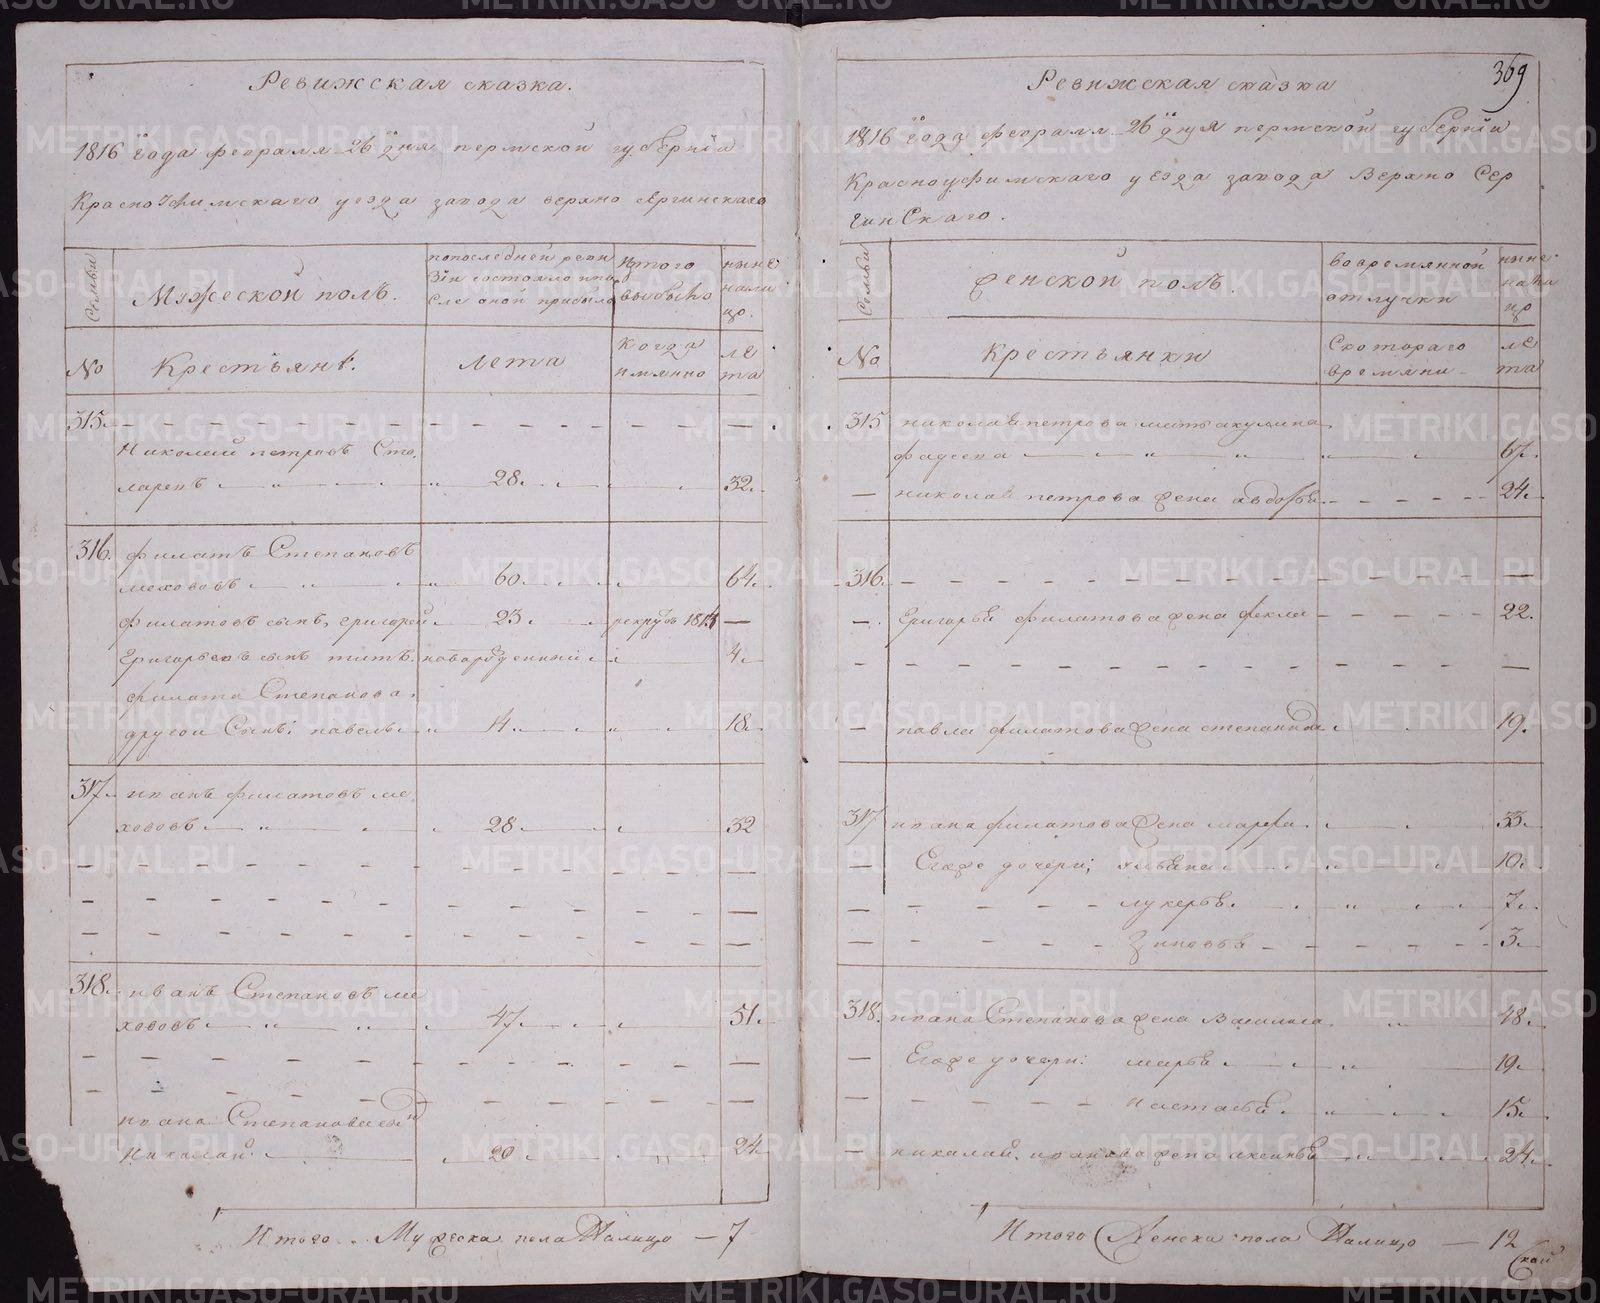 Ревижская сказка.
1816 года февраля 26 дня пермской губернии
Красноуфимскаго уезда завода верхно сергинскаго
Семьи
Мужеской полъ.
попоследней реви
зіи состояло ипо
сле оной прибыло
Изтого
выбыло
ныне
нали
цо.
No
Крестьянъ.
Лета
когда
имянно
ле
та
315.
Николай петровъ Сто
ляревъ 28. 32.
316. филатъ Степановъ
меховъ 60. 64.
филатовъ сынъ, григорей 23 рекрутъ 1813 —
Григорьевъ сынъ титъ. новорожденный 4.
филата Степанова.
другой Сынъ: павелъ 14. 18.
317. иванъ филатовъ ме
ховъ 28 32
318. иванъ Степановъ ме
ховъ 47 51.
ивана Степанова сын
Николай 20 24
Итого .. Мужеска пола Налицо — 7
369
Ревижская сказка
1816 года февраля 26 дня пермской губернии
Красноуфимскаго уезда завода Верхно Сер
гинСкаго.
Семьи
женской полъ.
вовремянной
отлучки
ныне
нали
цо
No
Крестьянки
Скотораго
времяни
ле
та
315 николая петрова мать акулина
фадеева 67.
— николая петрова жена авдотья 24.
316.
— Григорья филатова жена фекла 22.
— павла филатова жена степанида 19.
317 ивана филатова жена марфа. 33.
— Егоже дочери; ульяна 10.
— лукерья. 7.
— Зиновья 3.
318. ивана Степанова жена Василиса 48.
— Егоже дочери: марья 19.
— настасья 15.
— николая ивановa жена аксинья 24.
Итого Женска пола Налицо — 12